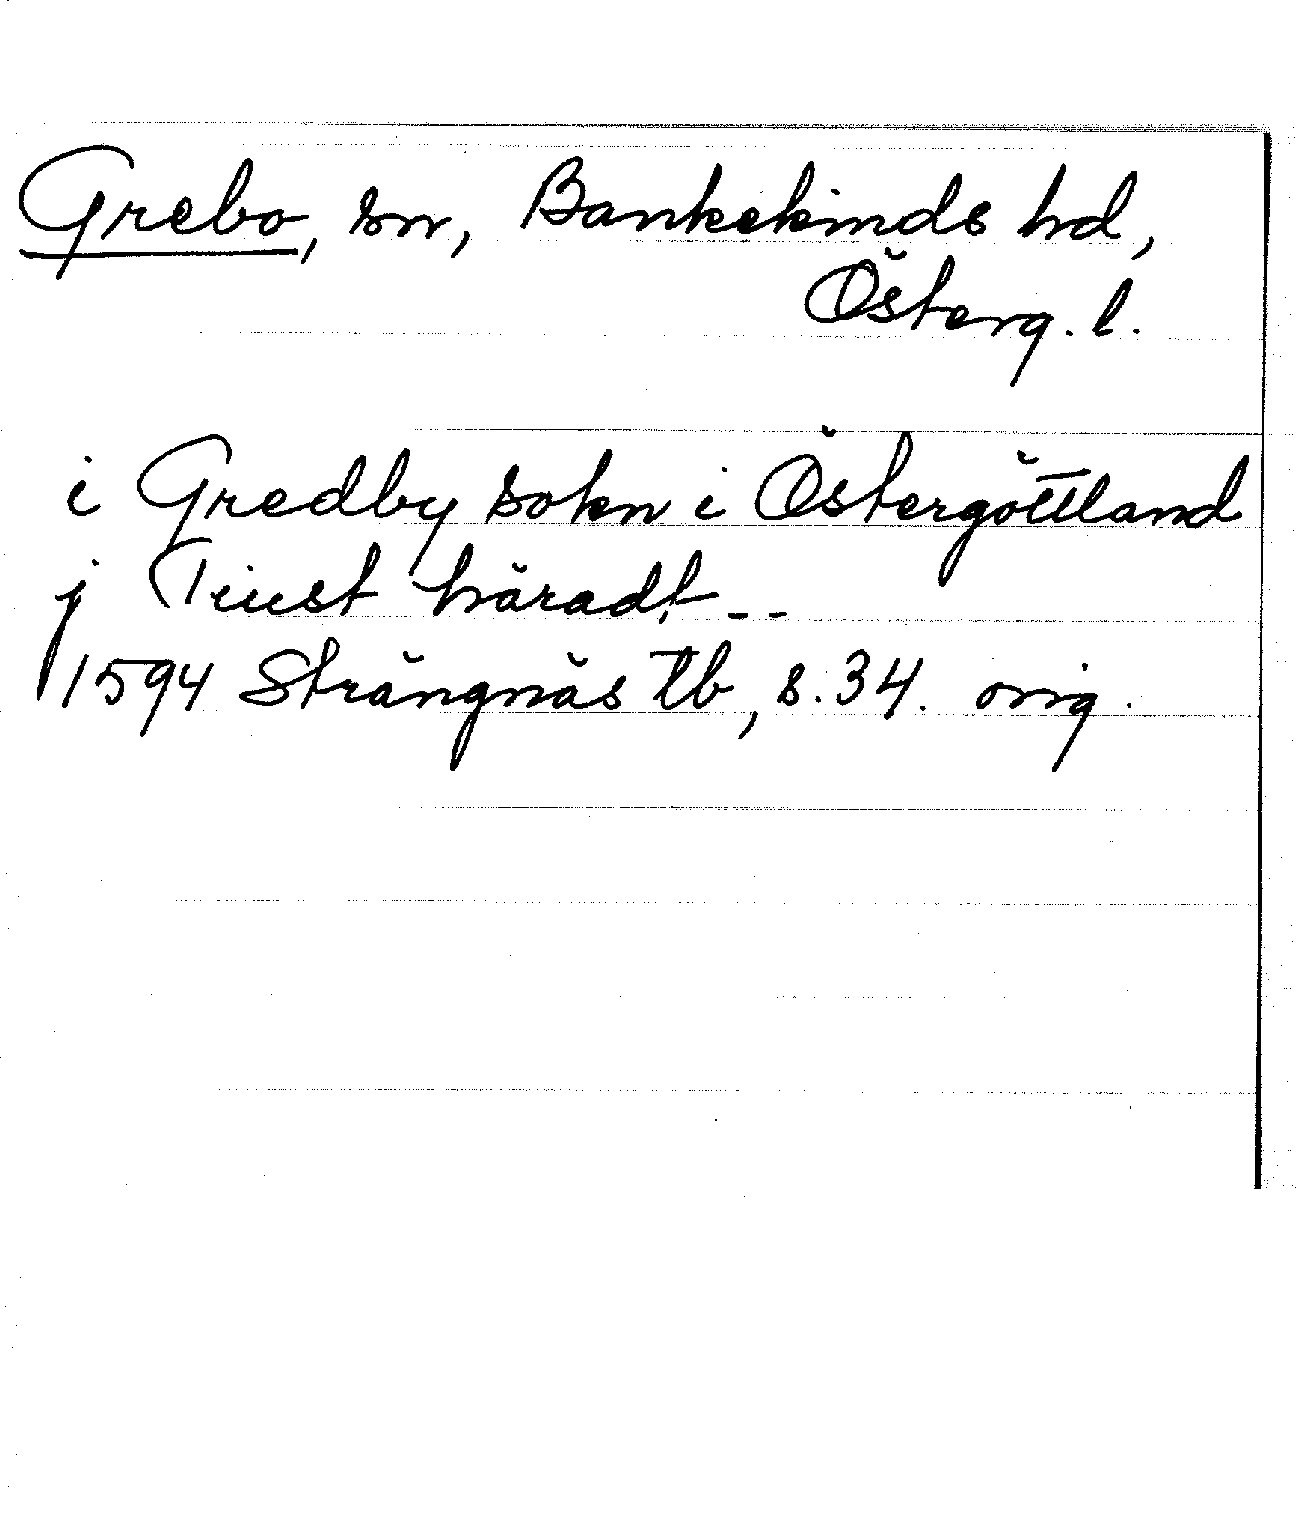 Grebo, sn, Bankekinds hd,
Österg. l.
i Gredby sokn i Östergöttland
j Tiust häradt --
1594 Strängnäs tb, s. 34. orig.